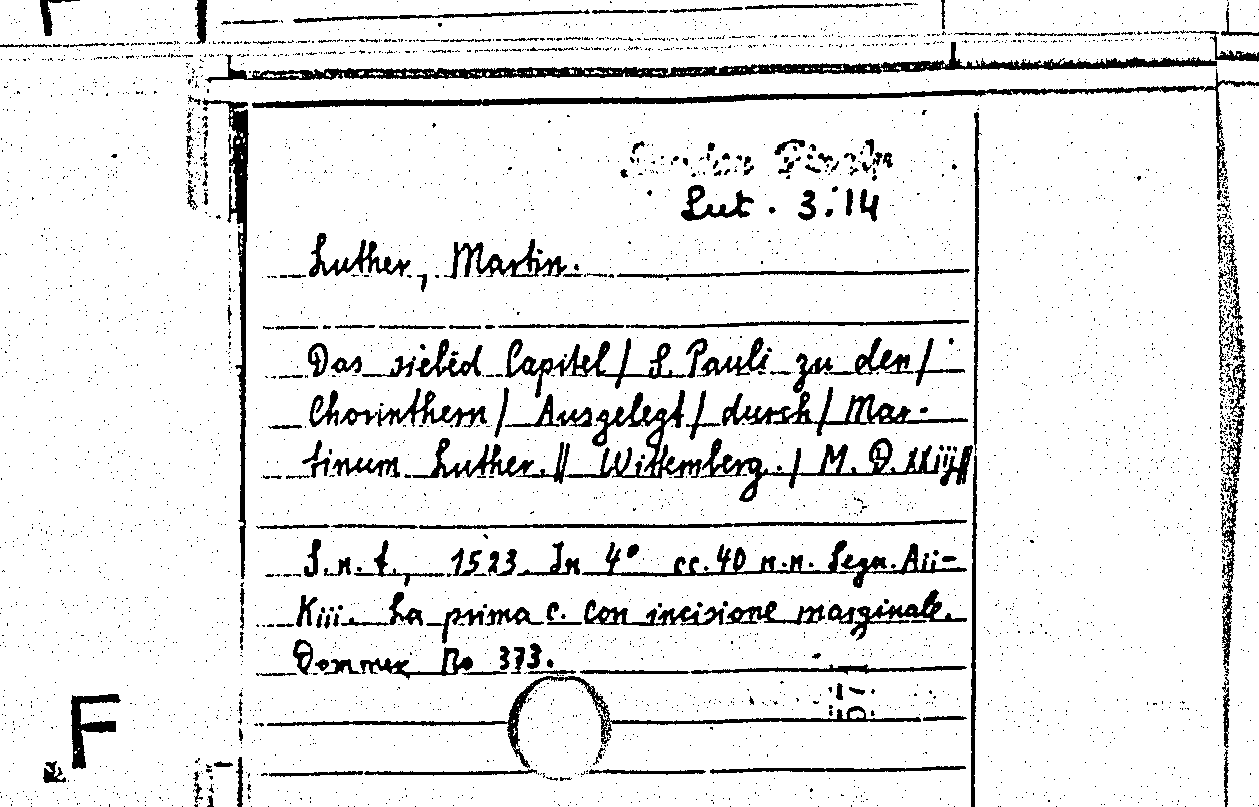 Lut. 3.14
Luther, Martin.
Das siebẽd Capitel / S. Pauli zu den /
Chorinthern / Ausgelegt / durch / Mar-
tinum Luther. || Wittemberg. / M. D. XXiij ||
S.n.t., 1523. In 4° cc. 40 n.n. Segn. Aii-
Kiii. La prima c. con incisione marginale.
Dommer no 373.
F